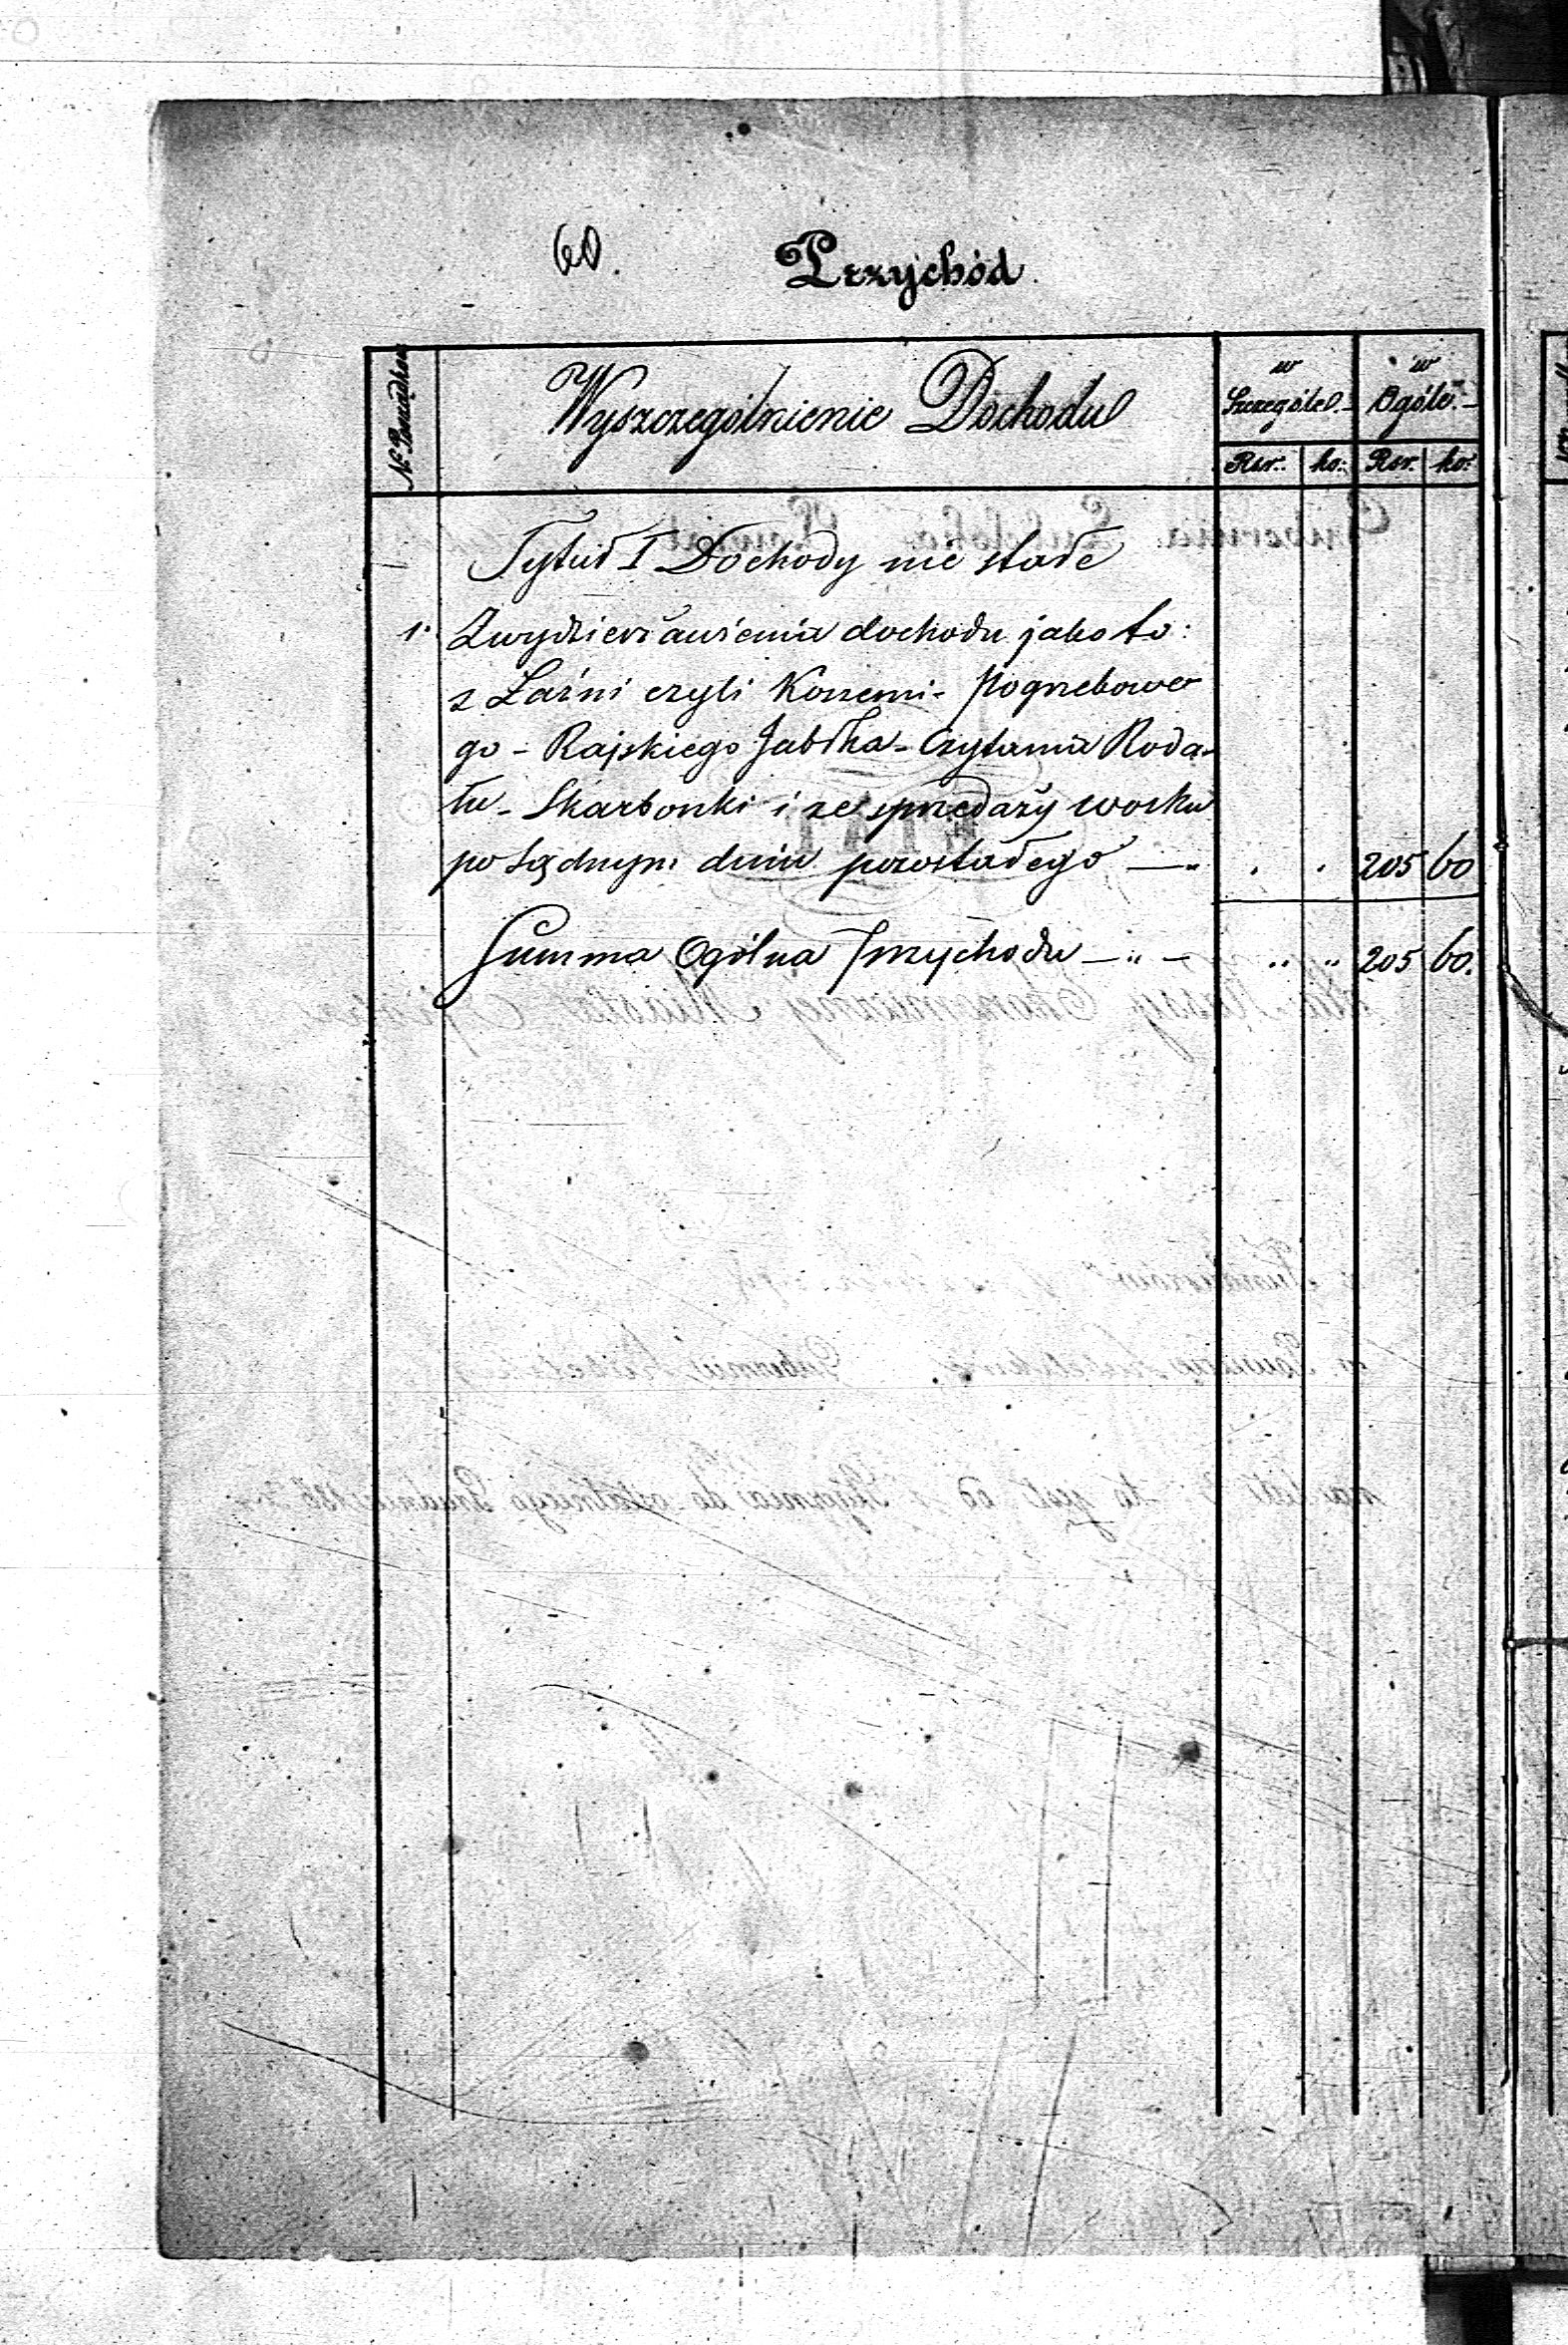 60.
Przychód.
N: Porządkowy
Wyszczególnienie Dochodu
w Szczególe.
w Ogóle.
Rsr. ko: Rsr. ko:
Tytuł I Dochody nie stałe
1. Zwydzierżawienia dochodu jako to:
z Łaźni czyli Koszerni - Pogrzebowe
go - Rajskiego Jabłka - Czytania Roda-
łu - Skarbonki i ze sprzedaży wosku
po Sądnym dniu pozostałego — " . . 205 60
Summa Ogólna Przychodu — " — " " 205 60.